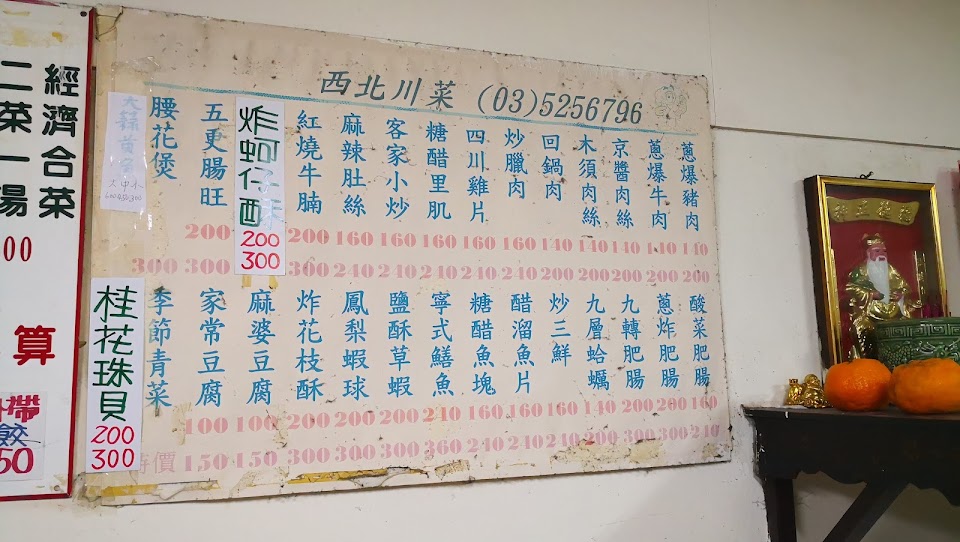 西北川菜 (03)5256796
蔥爆豬肉 140 200
蔥爆牛肉 140 200
京醬肉絲 140 200
木須肉絲 140 200
回鍋肉 140 200
炒臘肉 160 240
四川雞片 160 240
糖醋里肌 160 240
客家小炒 160 240
麻辣肚絲 160 240
紅燒牛腩 200 300
炸蚵仔酥 200 300
五更腸旺 200 300
腰花煲 300
酸菜肥腸 160 240
蔥炸肥腸 200 300
九轉肥腸 200 300
九層蛤蠣 140 200
炒三鮮 160 240
醋溜魚片 160 240
糖醋魚塊 160 240
寧式鱔魚 240 360
鹽酥草蝦 200 300
鳳梨蝦球 200 300
炸花枝酥 200 300
麻婆豆腐 100 150
家常豆腐 100 150
季節青菜 特價
桂花珠貝 200 300
經濟合菜
二菜一湯
00
算
帶
餃
50